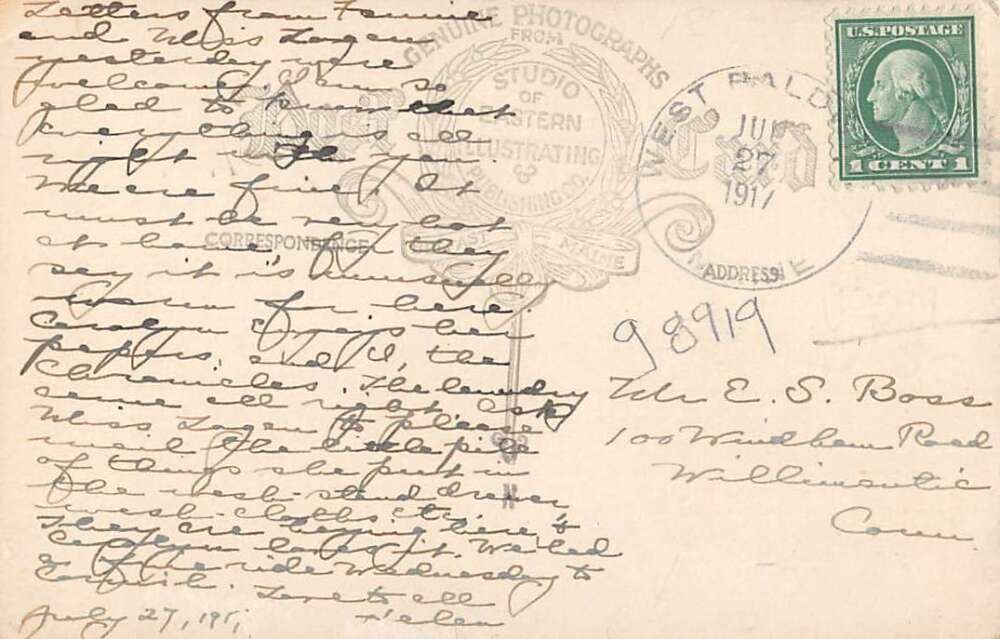 Letters from Fannie
and Miss Logan
yesterday were
welcome. I am so
glad to know that
everything is all
right with you.
We are fine. It
must be very hot
at home, for they
say it is unusually
warm for here.
Carolyn enjoys her
papers, and I, the
Chronicles. The laundry
came all right. Ask
Miss Logan to please
mail the little pile
of things she put in
the wash-stand drawer,
wash-cloths etc.
They are haying here &
Carolyn loves it. We had
a fine ride Wednesday to
Cornish. Love to all
July 27, 191
Helen
GENUINE PHOTOGRAPHS
FROM
STUDIO
OF
EASTERN
ILLUSTRATING
&
PUBLISHING CO.
BELFAST MAINE
Post Card
CORRESPONDENCE
ADDRESS
WEST BALD
JUL
27
1917
U.S. POSTAGE
1 CENT 1
98919
Mr E. S. Boss
100 Windham Road
Willimantic
Conn.